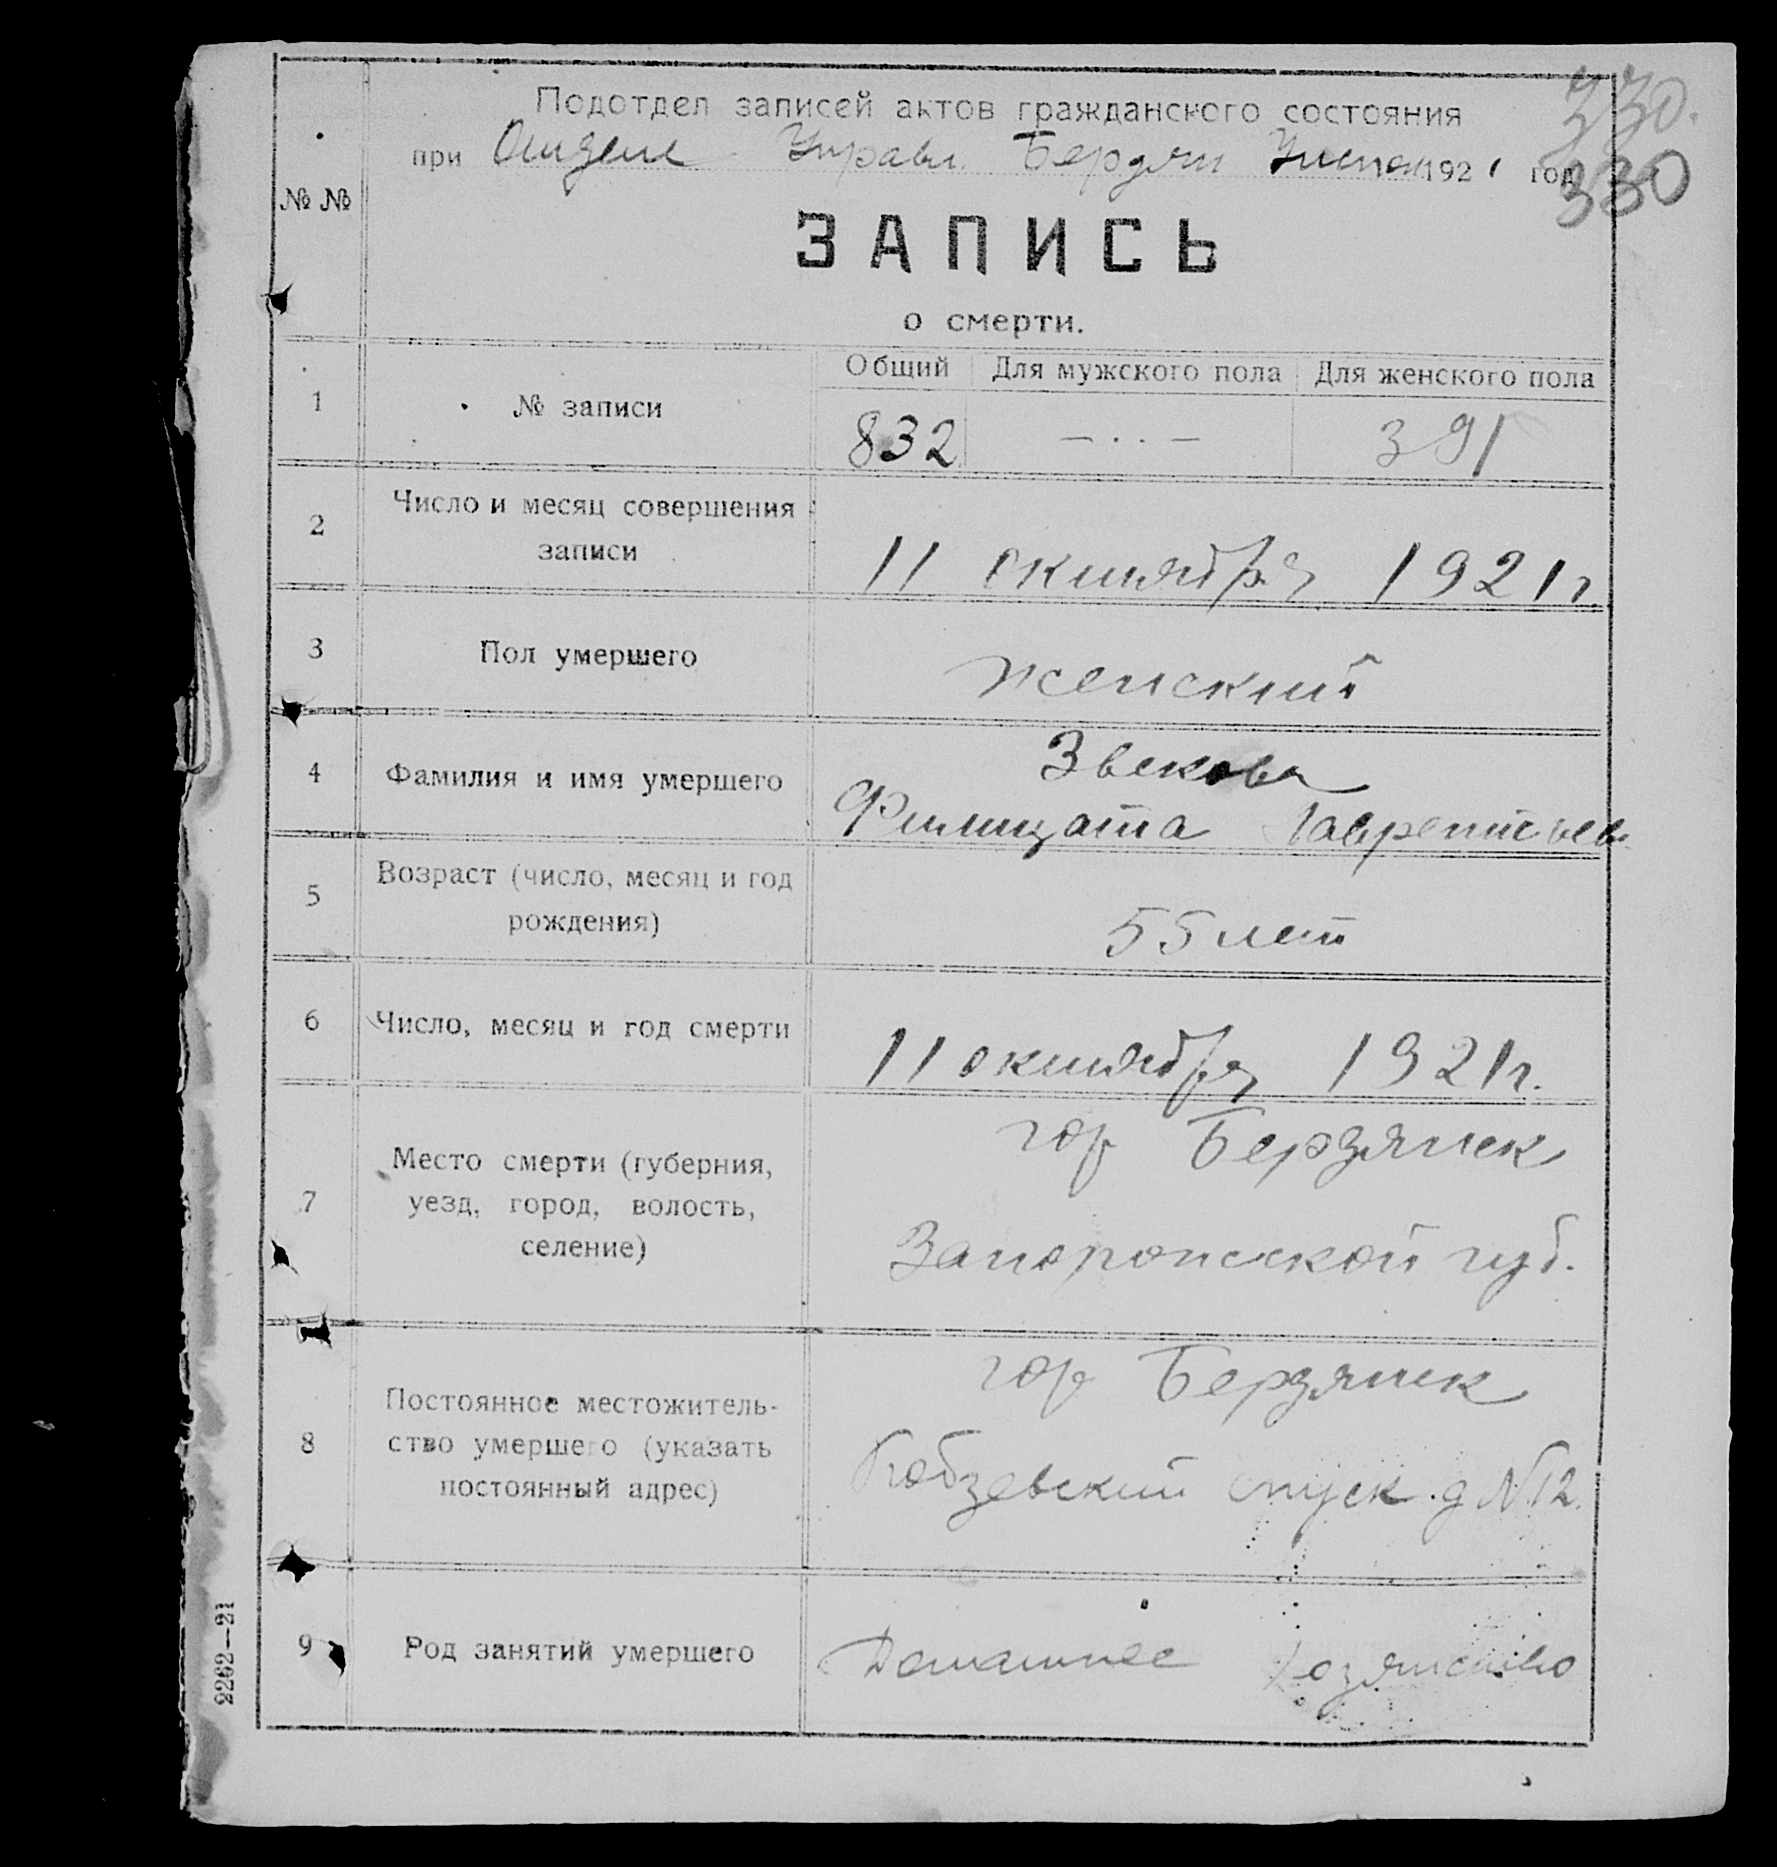 Подотдел записей актов гражданского состояния
330.
при Отделе Управл. Бердян Уисполк 1921 год
330
№ №
ЗАПИСЬ
о смерти.
Общий Для мужского пола Для женского пола
1 № записи 832 — · · — 391
2 Число и месяц совершения
записи 11 октября 1921 г.
3 Пол умершего женский
4 Фамилия и имя умершего Звекова
Филицата Лаврентьев
5 Возраст (число, месяц и год
рождения) 55 лет
6 Число, месяц и год смерти 11 октября 1921 г.
7 Место смерти (губерния,
уезд, город, волость,
селение)
гор Бердянск
Запорожской губ.
8 Постоянное местожитель-
ство умершего (указать
постоянный адрес)
гор Бердянск
Кобзевский спуск д № 12.
9 Род занятий умершего Домашнее хозяйство
2262—21